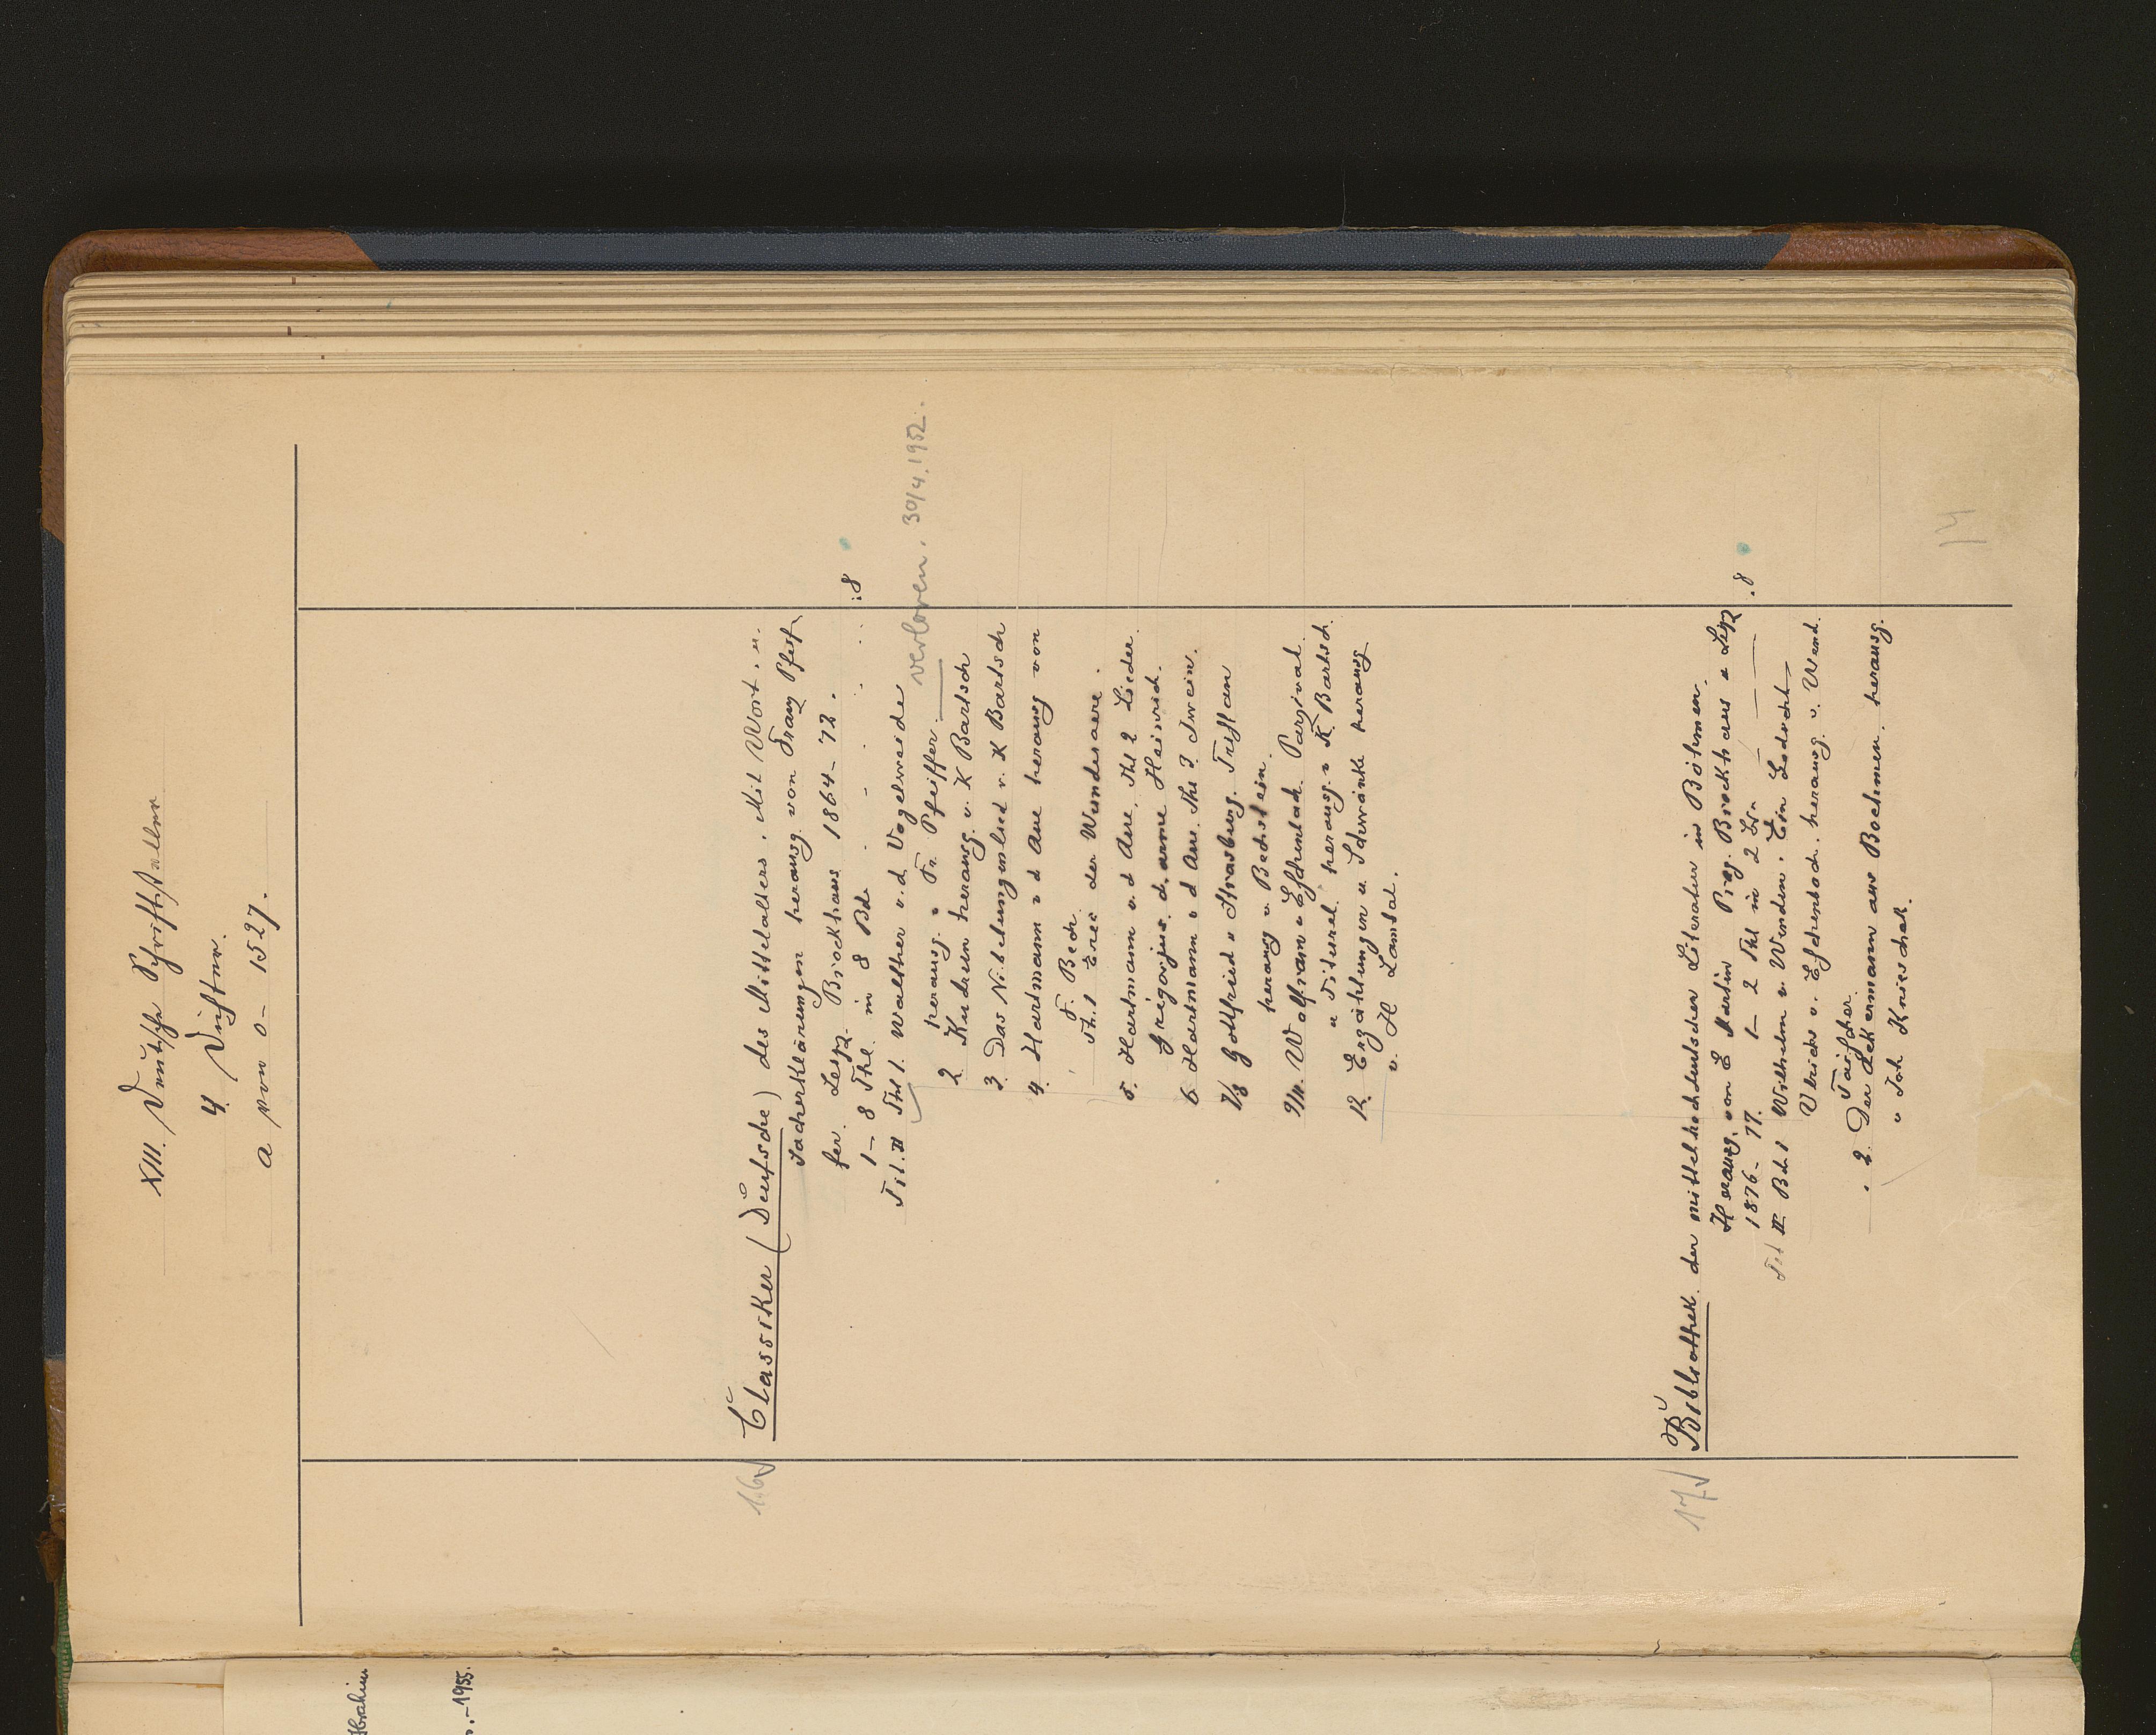 XIII. Deutsche Schriftsteller
4. Dichter.
a von 0 - 1527.
16 Classiker (Deutsche) des Mittelalters. Mit Wort. u.
Sacherklärungen herausg. von Franz Pfeif-
fer. Leipz. Brockhaus 1864-72.
1-8 Thl. in 8 Bde . - . . . :8
Tit. II Thl 1. Walther v. d. Vogelweide
herausg. v Fr. Pfeiffer. verloren. 30/4.1952.
2 Kudrun herausg. v. K Bartsch
3. Das Nibelungenlied v. K Bartsch
4. Hartmann v d Aue herausg von
F. Bech.
Th. 1 Erec der Wunderaere.
5. Hartmann v. d Aue, Thl 2 Lieder.
Gregorius. d. arme Heinrich.
6 Hartmann v d Aue. Thl 3 Iwein.
7/8 Gottfried v Strasburg. Tristan
herausg v Bechstein.
9/11. Wolfram v Eschenbach. Parzival
u Titurel herausg. v K Bartsch.
12. Erzählungen u. Schwänke herausg
v. H Lambal.
17 Bibliothek der mittelhochdeutschen Literatur in Böhmen.
Herausg. von E Martin Prag. Brockhaus u Leipz
1876-77. 1-2 Thl in 2 Bde — — .8
Tit II Bd 1 Wilhelm v. Wenden. Ein Gedicht
Ulrichs v. Eschenbach. herausg. v. Wend.
Toischer.
. 2. Der Ackermann aus Boehmen. herausg.
v Joh Knieschek.
14
Ibrahim
.-1955.